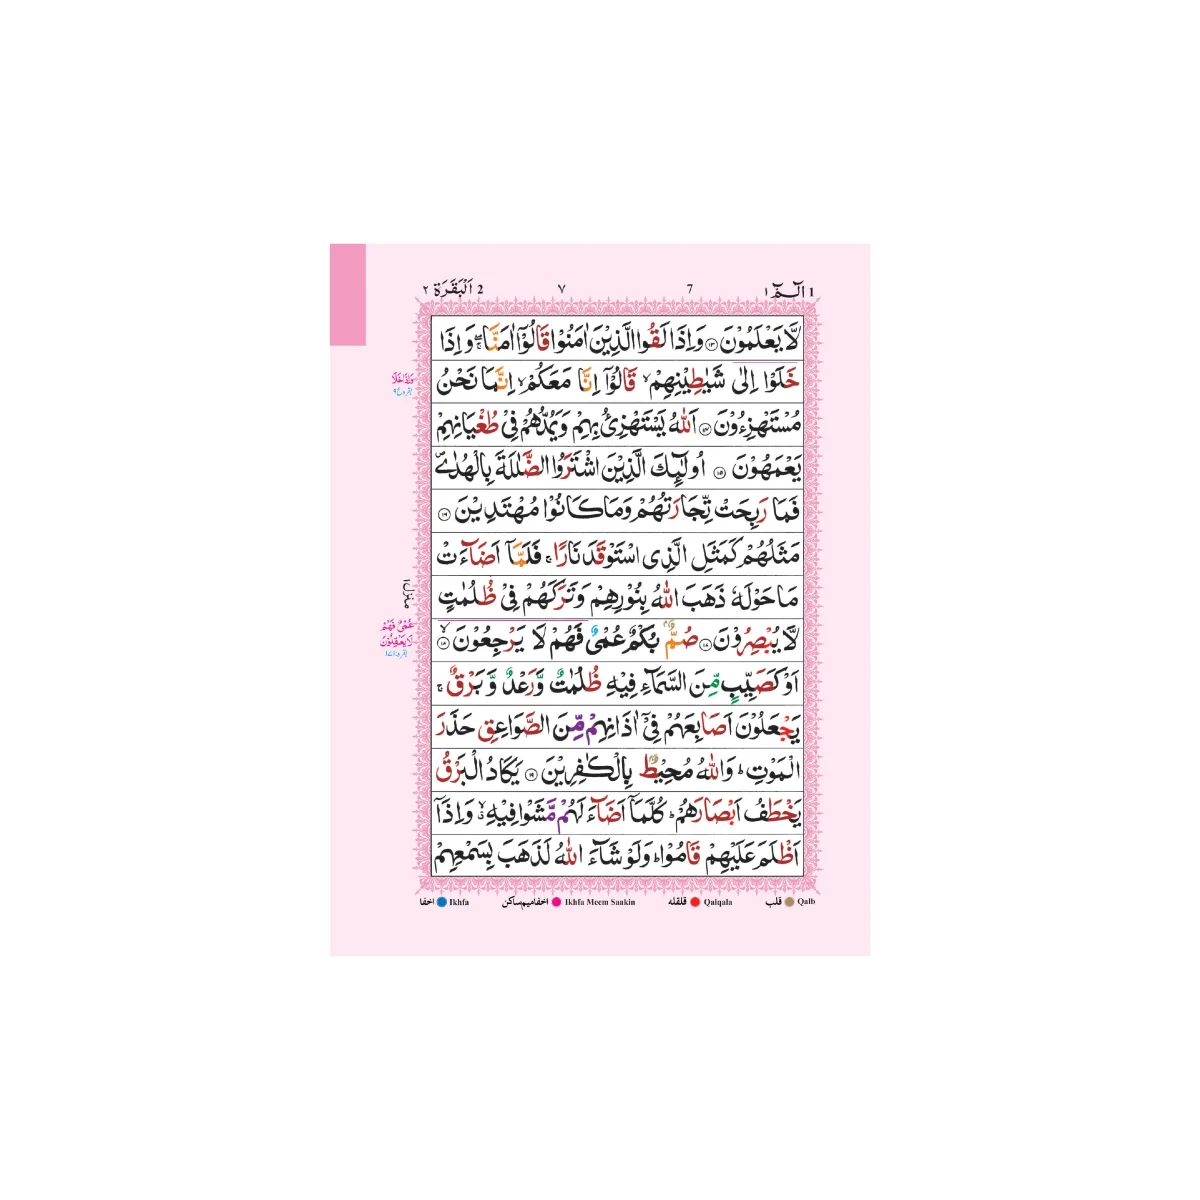 1 الٓـمّٓ ١ 7 ٧ 2 اَلْبَقَرَة ٢
لَّا يَعْلَمُوْنَ ۝۱۳ وَ اِذَا لَقُوا الَّذِيْنَ اٰمَنُوْا قَالُوْۤا اٰمَنَّا ۚۖ وَ اِذَا
خَلَوْا اِلٰى شَيٰطِيْنِهِمْ ۙ قَالُوْۤا اِنَّا مَعَكُمْ ۙ اِنَّمَا نَحْنُ
مُسْتَهْزِءُوْنَ ۝۱۴ اَللّٰهُ يَسْتَهْزِئُ بِهِمْ وَيَمُدُّهُمْ فِيْ طُغْيَانِهِمْ
يَعْمَهُوْنَ ۝۱۵ اُولٰٓئِكَ الَّذِيْنَ اشْتَرَوُا الضَّلٰلَةَ بِالْهُدٰى ۪
فَمَا رَبِحَتْ تِّجَارَتُهُمْ وَمَا كَانُوْا مُهْتَدِيْنَ ۝۱۶
مَثَلُهُمْ كَمَثَلِ الَّذِى اسْتَوْقَدَ نَارًا ۚ فَلَمَّاۤ اَضَآءَتْ
مَا حَوْلَهٗ ذَهَبَ اللّٰهُ بِنُوْرِهِمْ وَتَرَكَهُمْ فِيْ ظُلُمٰتٍ
لَّا يُبْصِرُوْنَ ۝۱۷ صُمٌّۢ بُكْمٌ عُمْيٌ فَهُمْ لَا يَرْجِعُوْنَ ۙ۝۱۸
اَوْ كَصَيِّبٍ مِّنَ السَّمَآءِ فِيْهِ ظُلُمٰتٌ وَّرَعْدٌ وَّ بَرْقٌ ۚ
يَجْعَلُوْنَ اَصَابِعَهُمْ فِيْۤ اٰذَانِهِمْ مِّنَ الصَّوَاعِقِ حَذَرَ
الْمَوْتِ ؕ وَاللّٰهُ مُحِيْطٌۢ بِالْكٰفِرِيْنَ ۝۱۹ يَكَادُ الْبَرْقُ
يَخْطَفُ اَبْصَارَهُمْ ؕ كُلَّمَاۤ اَضَآءَ لَهُمْ مَّشَوْا فِيْهِ ۙۗ وَ اِذَاۤ
اَظْلَمَ عَلَيْهِمْ قَامُوْا ؕ وَلَوْ شَآءَ اللّٰهُ لَذَهَبَ بِسَمْعِهِمْ
منزل ١
عُمْيٌ فَهُمْ
لَا يَعْقِلُوْنَ
Qalb قلب Qalqala قلقله Ikhfa Meem Saakin اخفا میم ساکن Ikhfa اخفا